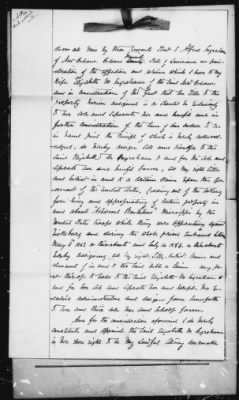 Know all Men by these Presents That I Alfred Ingraham
of New Orleans Orleans Parish State of Louisiana in consi-
deration of the affection and esteem which I have to my
Wife Elizabeth M Ingraham of the said New Orleans
and in consideration of the fact that the title to the
property herein assigned is or should be exclusively
to her sole and separate use and benefit and in
further consideration of the sum of one dollar to me
in hand paid the receipt of which is hereby acknow-
ledged, do hereby assign sell and transfer to the
said Elizabeth M Ingraham to and for her sole and
separate use and benefit forever, all my right title
and interest in and to certain claims upon the Gov-
ernment of the United States, growing out of the taking
from being and appropriating of certain property in
and about Ashwood Plantation Mississippi by the
United States troops while being and operating against
Vicksburg and during the whole period between
May 3 1863 or thereabouts and July 4 1863 or thereabouts
hereby assigning all my right, title, interest claim and
demand of in and to the said
to the said Elizabeth M Ingraham to
and for her sole and separate use and benefit. Her
administrators and assigns from henceforth
to her and their sole use and benefit forever
And for the consideration aforesaid I do hereby
constitute and appoint the said Elizabeth M Ingraham
in her own right to be my lawful attorney irrevocable